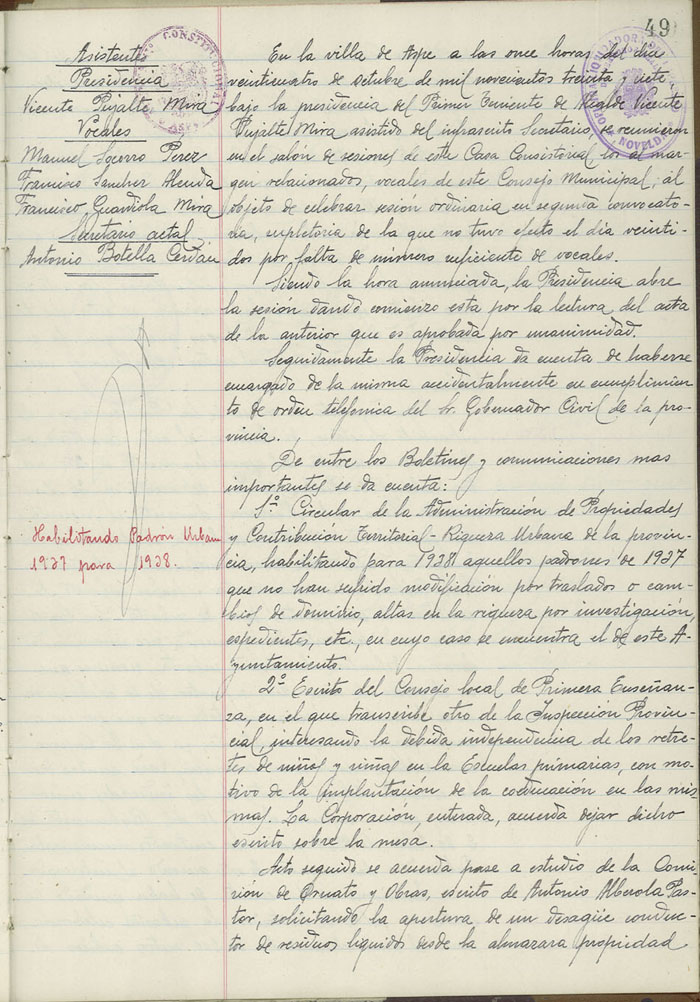 49
Asistentes
Presidencia
Vicente Pujalte Mira
Vocales
Manuel Socorro Perez
Francisco Sanchez Almda
Francisco Guardiola Mira
Secretario actal.
Antonio Botella Cerdán
En la villa de Aspe a las once horas del día
veinticuatro de octubre de mil novecientos treinta y siete
bajo la presidencia del Primer Teniente de Alcalde Vicente
Pujalte Mira asistido del infrascrito Secretario, se reunieron
en el salón de sesiones de esta Casa Consistorial, los al mar-
gen relacionados, vocales de este Consejo Municipal, al
objeto de celebrar sesión ordinaria en segunda convocato-
ria, supletoria de la que no tuvo efecto el día veinti-
dos por falta de número suficiente de vocales.
Siendo la hora anunciada, la Presidencia abre
la sesión dando comienzo esta por la lectura del acta
de la anterior que es aprobada por unanimidad.
Seguidamente la Presidencia da cuenta de haberse
encargado de la misma accidentalmente en cumplimien-
to de orden telefónica del Sr. Gobernador Civil de la pro-
vincia.
De entre los Boletines y comunicaciones mas
importantes se da cuenta:
1º Circular de la Administración de Propiedades
y Contribución Territorial-Riqueza Urbana de la provin-
cia, habilitando para 1938 aquellos padrones de 1937
que no han sufrido modificación por traslados o cam-
bios de dominio, altas en la riqueza por investigación,
expedientes, etc., en cuyo caso se encuentra el de este A-
yuntamiento.
Habilitando Padrón Urbana
1937 para 1938.
2º Escrito del Consejo local de Primera Enseñan-
za, en el que transcribe otro de la Inspección Provin-
cial, interesando la debida independencia de los retre-
tes de niños y niñas en la Escuelas primarias, con mo-
tivo de la implantación de la coeducación en las mis-
mas. La Corporación, enterada, acuerda dejar dicho
escrito sobre la mesa.
Acto seguido se acuerda pase a estudio de la Comi-
sión de Ornato y Obras, escrito de Antonio Alberola Pas-
tor, solicitando la apertura de un desagüe conduc-
tor de residuos líquidos desde la almazara propiedad